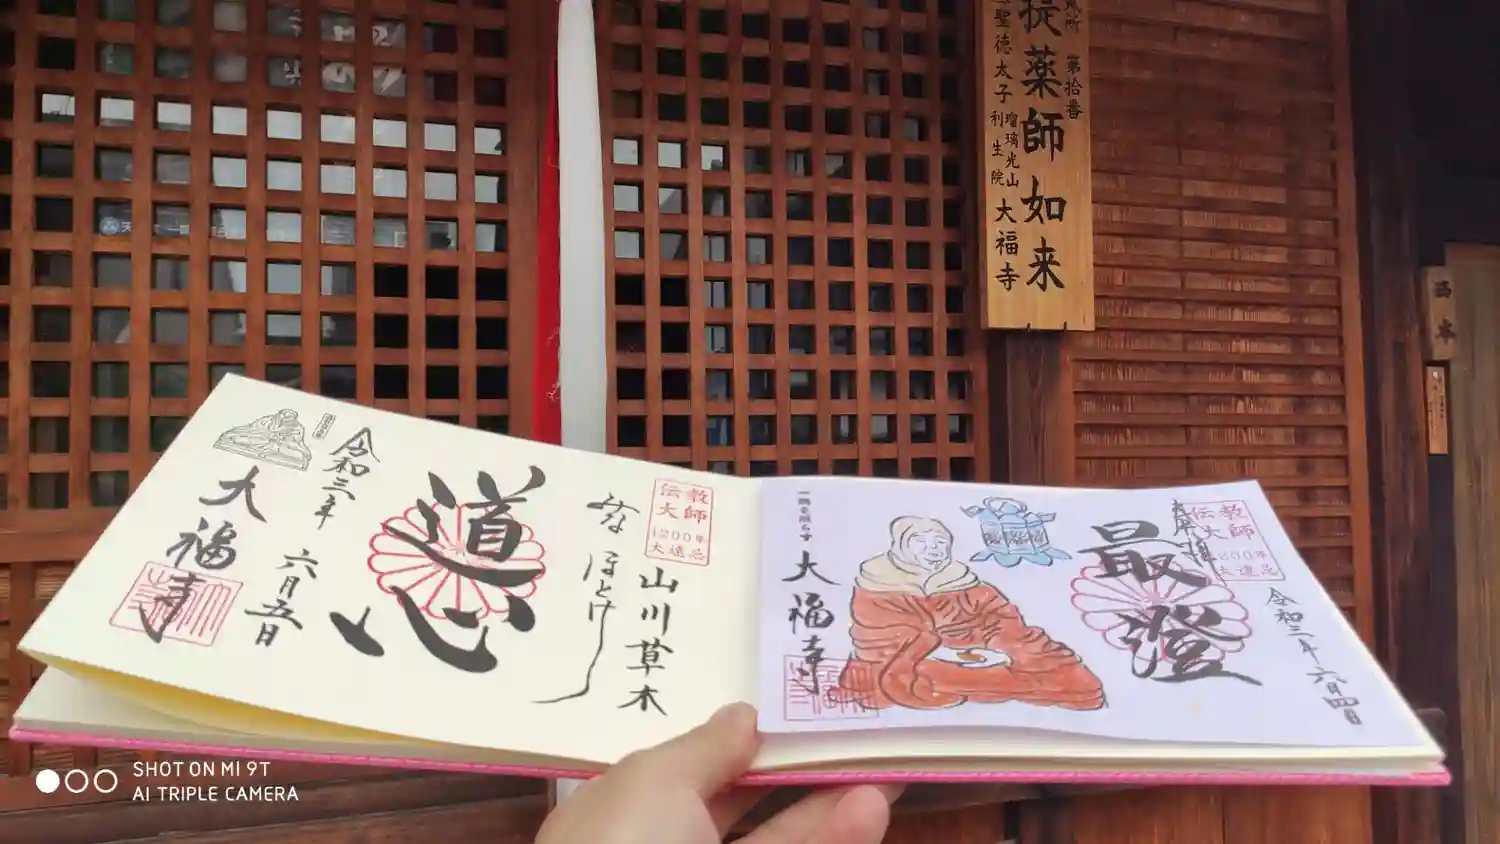 第拾番
提薬師如来
聖徳太子
瑠璃光山
利生院
大福寺
教師
伝大
1200年
大遠忌
山川草木
みな
ほとけ
道心
令和三年
六月五日
大福寺
教師
伝大
1200年
大遠忌
最澄
令和三年六月四日
一隅を照らす
大福寺
SHOT ON MI 9T
AI TRIPLE CAMERA